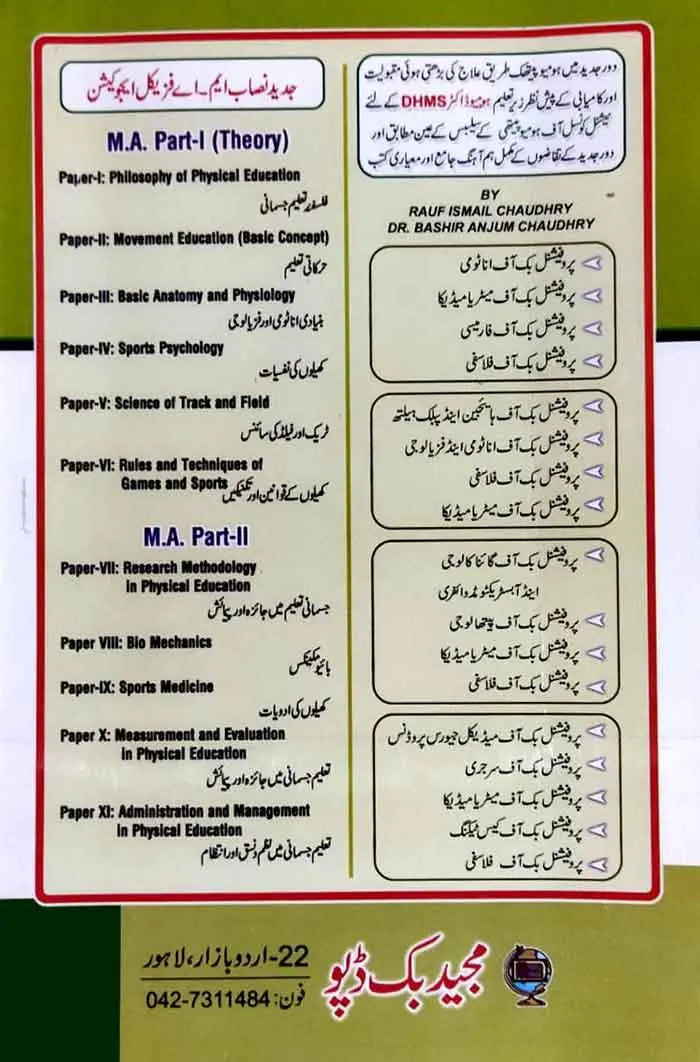 جدید نصاب ایم۔اے فزیکل ایجوکیشن
M.A. Part-I (Theory)
Paper-I: Philosophy of Physical Education
فلسفہ تعلیم جسمانی
Paper-II: Movement Education (Basic Concept)
حرکاتی تعلیم
Paper-III: Basic Anatomy and Physiology
بنیادی اناٹومی اور فزیالوجی
Paper-IV: Sports Psychology
کھیلوں کی نفسیات
Paper-V: Science of Track and Field
ٹریک اور فیلڈ کی سائنس
Paper-VI: Rules and Techniques of
Games and Sports
کھیلوں کے قوانین اور تکنیکیں
M.A. Part-II
Paper-VII: Research Methodology
in Physical Education
جسمانی تعلیم میں جائزہ اور پیمائش
Paper VIII: Bio Mechanics
بائیو مکینکس
Paper-IX: Sports Medicine
کھیلوں کی ادویات
Paper X: Measurement and Evaluation
in Physical Education
تعلیم جسمانی میں جائزہ اور پیمائش
Paper XI: Administration and Management
in Physical Education
تعلیم جسمانی میں نظم ونسق اور انتظام
دور جدید میں ہومیوپیتھک طریق علاج کی بڑھتی ہوئی مقبولیت
اور کامیابی کے پیش نظر زیر تعلیم ہومیوڈاکٹر DHMS کے لئے
نیشنل کونسل آف ہومیوپیتھی کے سلیبس کے عین مطابق اور
دور جدید کے تقاضوں کے مکمل ہم آہنگ جامع اور معیاری کتب
BY
RAUF ISMAIL CHAUDHRY
DR. BASHIR ANJUM CHAUDHRY
پروفیشنل بک آف اناٹومی
پروفیشنل بک آف میٹریا میڈیکا
پروفیشنل بک آف فارمیسی
پروفیشنل بک آف فلاسفی
پروفیشنل بک آف ہائیجین اینڈ پبلک ہیلتھ
پروفیشنل بک آف اناٹومی اینڈ فزیالوجی
پروفیشنل بک آف فلاسفی
پروفیشنل بک آف میٹریا میڈیکا
پروفیشنل بک آف گائنا کالوجی
اینڈ آبسٹریکٹو مڈوائفری
پروفیشنل بک آف پیتھالوجی
پروفیشنل بک آف میٹریا میڈیکا
پروفیشنل بک آف فلاسفی
پروفیشنل بک آف میڈیکل جیورس پروڈنس
پروفیشنل بک آف سرجری
پروفیشنل بک آف میٹریا میڈیکا
پروفیشنل بک آف کیس ٹیکنگ
پروفیشنل بک آف فلاسفی
مجید بک ڈپو
22-اردو بازار، لاہور
فون: 042-7311484